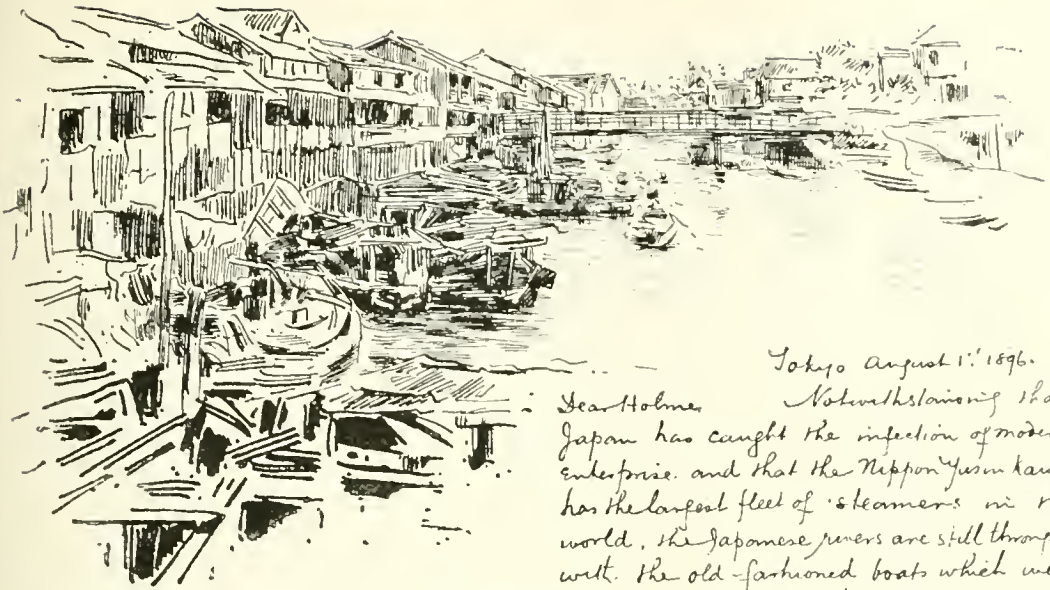 Tokyo August 1st. 1896.
Dear Holme, Notwithstanding tha
Japan has caught the infection of moder
Enterprise. and that the Nippon Yusen Kai
has the largest fleet of steamers in
world, the Japanese rivers are still throng
with the old-fashioned boats which we